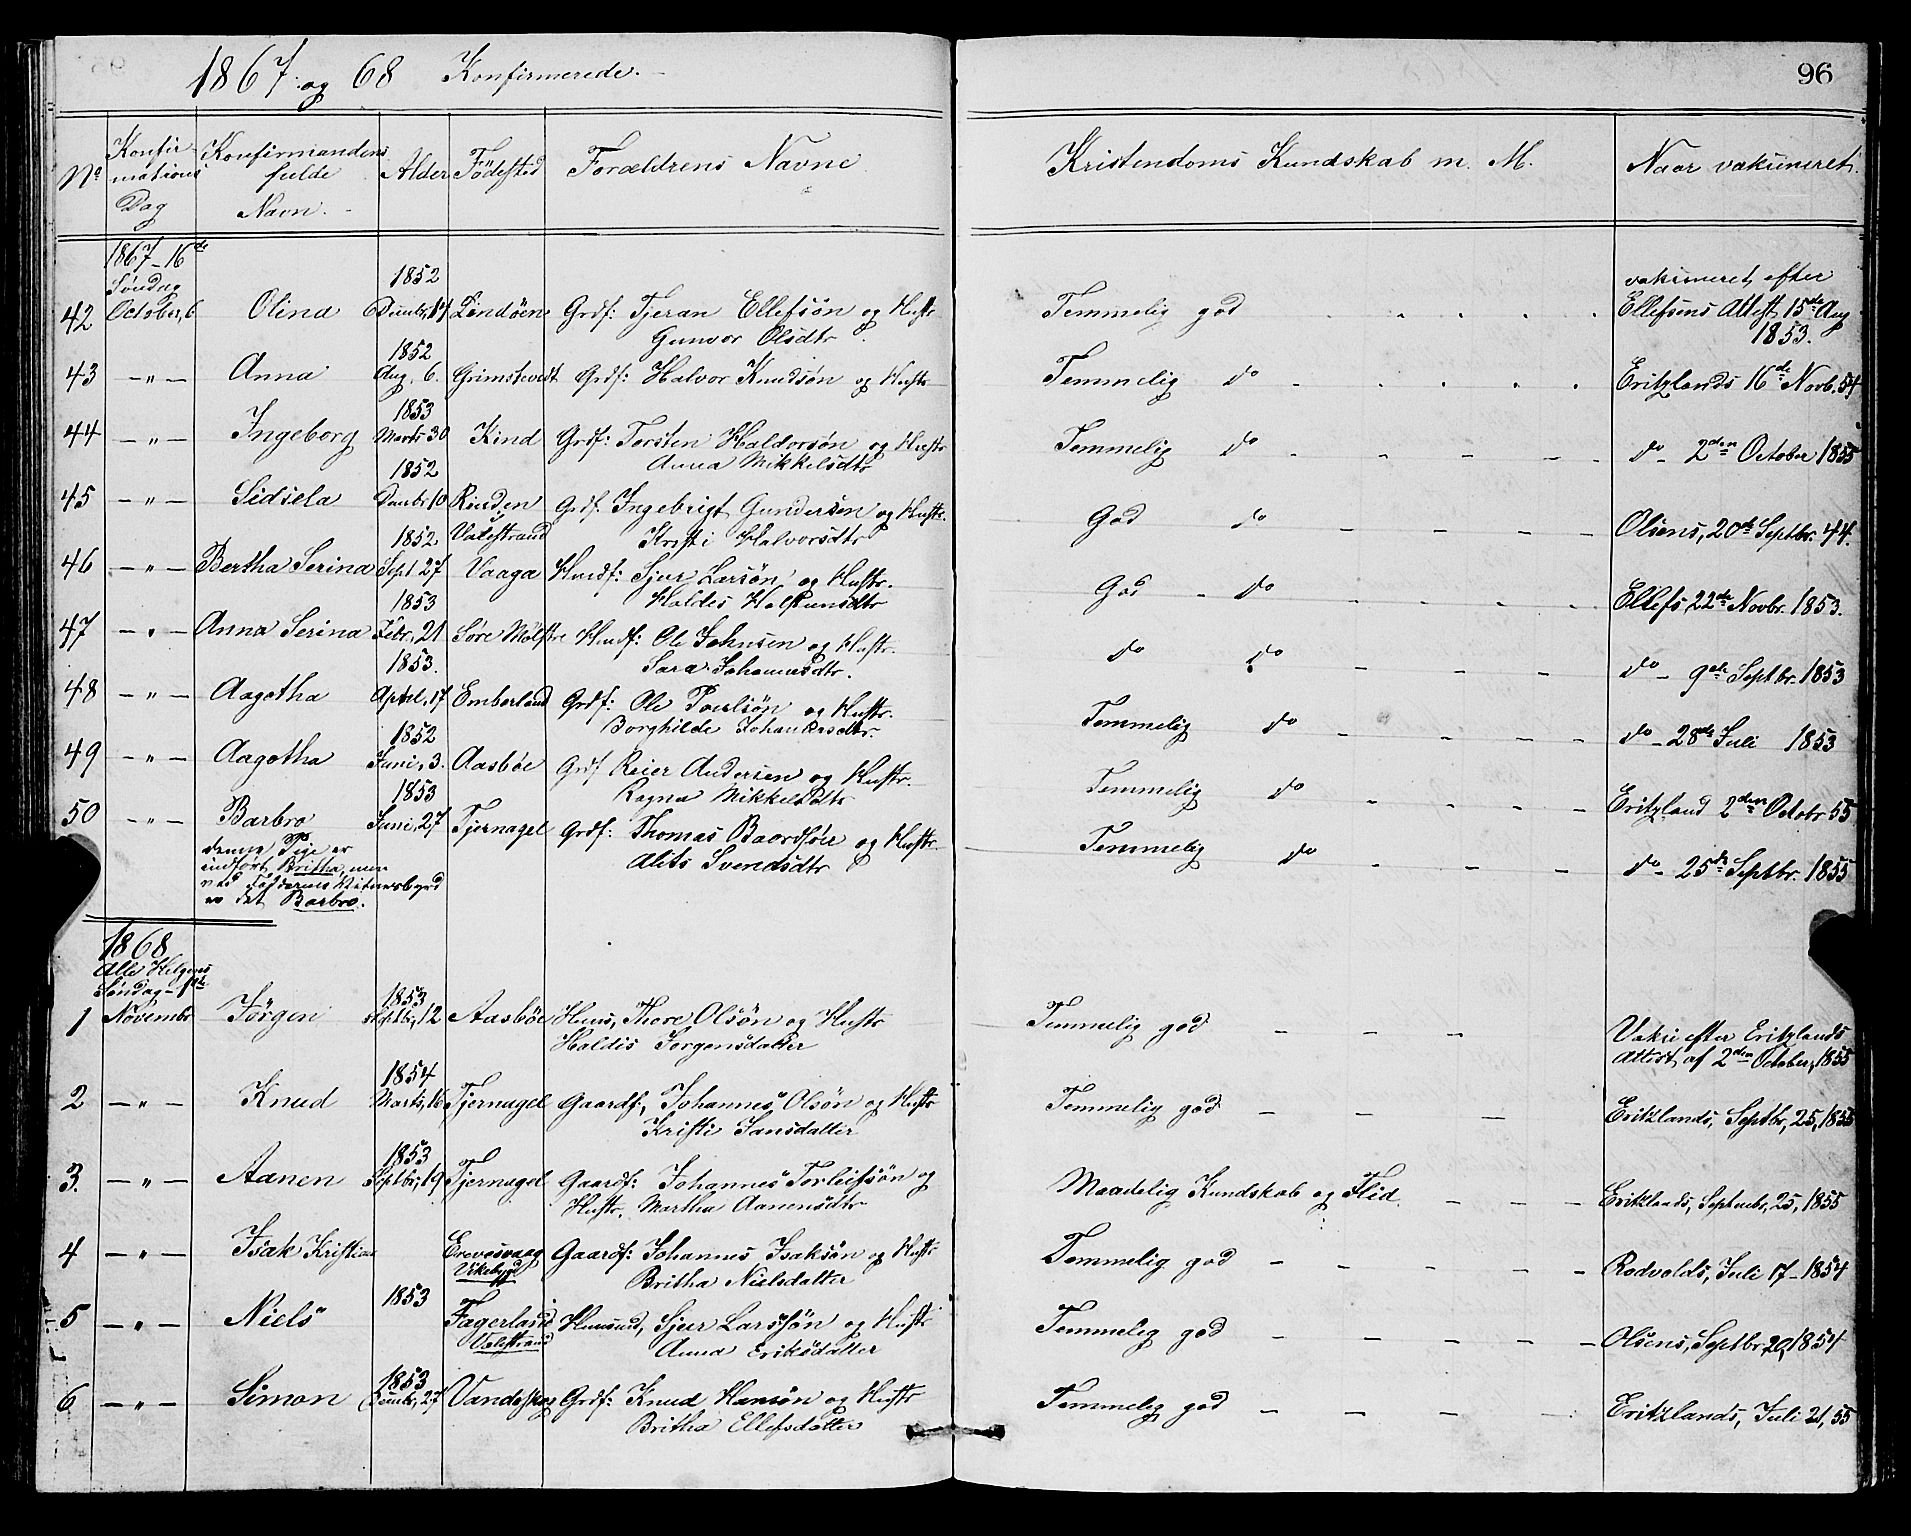 1867. og 68 Konfirmerede. 96
No Konfirmations Dag Konfirmandens fulde Navn. Alder Födested Forældrens Navne Kristendoms Kundskab m. M. Naar vakcineret.
1867 - 16de
Söndag 1852 vakcineret efter
42 October, 6 Olina Decmbr, 14 Lindöen Grdf: Tjeran Ellefsön og Hustr Temmelig god Ellefsens Attest 15de Aug
Gunvor Olsdtr 1853.
1852
43 —"— Anna Aug. 6. Grimstvedt Grdf: Halvor Knudsön og Hustr Temmelig do Eritzlands 16de Novb. 54
1853
44 —"— Ingeborg Marts 30 Kind Grdf: Torsten Haldorsön og Hustr Temmelig do do - 2den October 1855
Anna Mikkelsdtr
1852
45 —"— Sidsela Decmbr 10 Rinden Grdf. Ingebrigt Gundersen og Hustr. God do Olsens, 20de Septbr. 44.
Valestrand Kristi Halvorsdtr
1852
46 —"— Bertha Serina Sept 27 Vaaga Husdf: Sjur Larsön og Hustr. God - do Ellefs 22de Novbr. 1853.
Haldis
1853
47 —"— Anna Serina Febr, 21 Söre Mölstre Husdf: Ole Johnsen og Hustr. do do do - 9de Septbr. 1853
Sara Johannesdtr.
1853.
48 —"— Aagotha April, 17 Emberland Grdf: Ole Poulsön og Hustr. Temmelig do do - 28de Juli 1853
Borghilde
1852
49 —"— Aagotha Juni, 3. Aasböe Grdf Reier Andersen og Hustr. Temmelig do Eritzland 2den Octobr 55
Ragna Mikkelsdtr
1853
50 —"— Barbro Juni, 27 Tjernagel Grdf: Thomas Baardsön og Hustr. Temmelig do do - 25de Septbr. 1855
Alits Svendsdtr
denne Pige er
indfört Britha, men
ved Faderens
er det Barbro.
1868
Alle Helgens
Söndag - 1ste
1853
1 Novembr Jörgen Septbr, 12 Aasböe Huus, Thore Olsön og Hustr Temmelig god Vakci efter Eritzlands
Haldis Jorgensdatter Attest af 2den October, 1855
1854
2 —"— Knud Marts, 16 Tjernagel Gaardf, Johannes Olsön og Hustr Temmelig god Eritzlands, Septbr, 25, 1855
Kristi Jansdatter
1853
3. —"— Aanen Septbr, 19 Tjernagel Gaardf: Johannes Torleifsön og Maadelig Kundskab og Flid. Eritzlands, Septembr, 25, 1855
Hustr. Martha Aanensdtr
4 —"— Isak Kristian Erevesvaag Gaardf: Johannes Isaksön og Hustr Temmelig god Rodvolds, Juli 17 - 1854
Vikebygd Britha Nielsdatter
1853
5 —"— Niels Fagerland Huusmd, Sjur Larssön og Hustr Temmelig god Olsens, Septbr, 20, 1854
Valestrand Anna Eriksdatter
1853
6 —"— Simon Decmbr, 27 Vandaskog Grdf: Knud Hansön og Hustr Temmelig god Eritzlands, Juli 21, 55
Britha Ellefsdatter